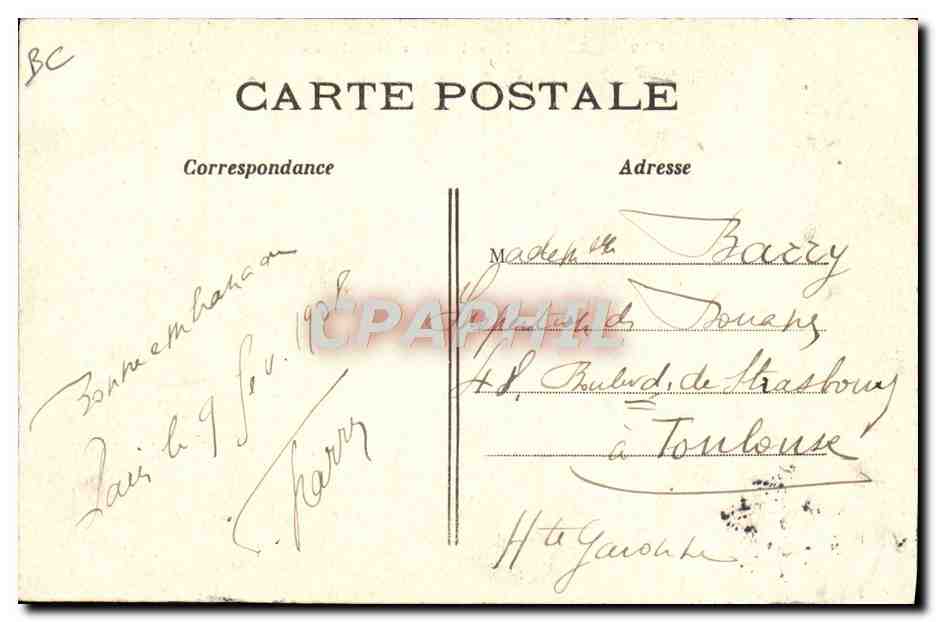 BC
CARTE POSTALE
Correspondance
Adresse
Bonne embrassade
Paris le 9 fev. 1908.
Barry
Mademlle Barry
Inspection des Douanes
48, Boulevd. de Strasbourg
à Toulouse
Hte Garonne
CPAPHIL